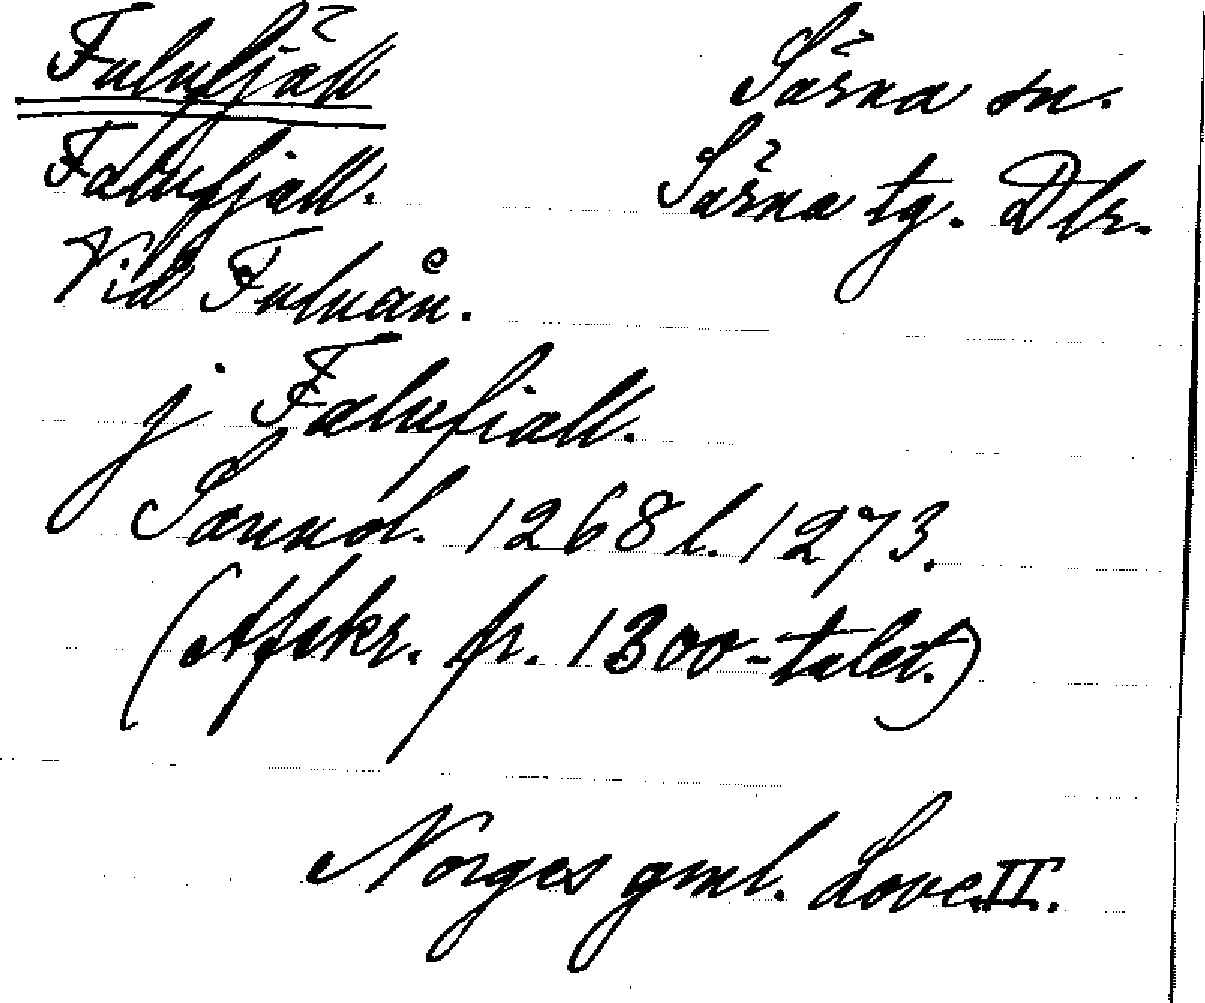 Fulufjäll Särna sn.
Falufjäll. Särna tg. Dlr.
Vid Fuluån.
j Falufiall.
Sannol. 1268 l. 1273.
(Afskr. fr. 1300-talet.)
Norges gml. Love II.